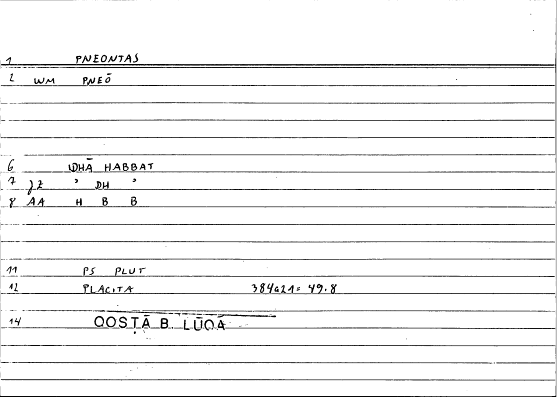 1 PNEONTAS
2 WM PNEŌ
6 WHĀ HABBAT
7 JZ ' DH '
8 AA H B B
11 PS PLUT
12 PLACITA 384a21= 49.8
14 QOSṬĀ B. LŪQĀ